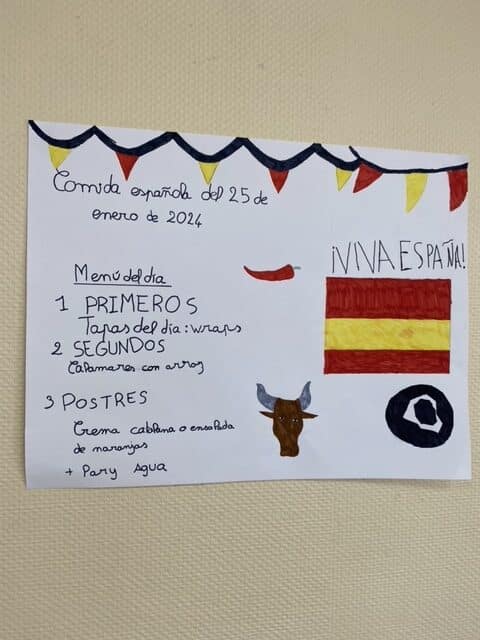 Comida española del 25 de
enero de 2024
¡VIVA ESPAÑA!
Menú del dia
1 PRIMEROS
Tapas del dia : wraps
2 SEGUNDOS
Calamares con arroz
3 POSTRES
Crema catalana o ensalada
de naranjas
+ Pan y Agua